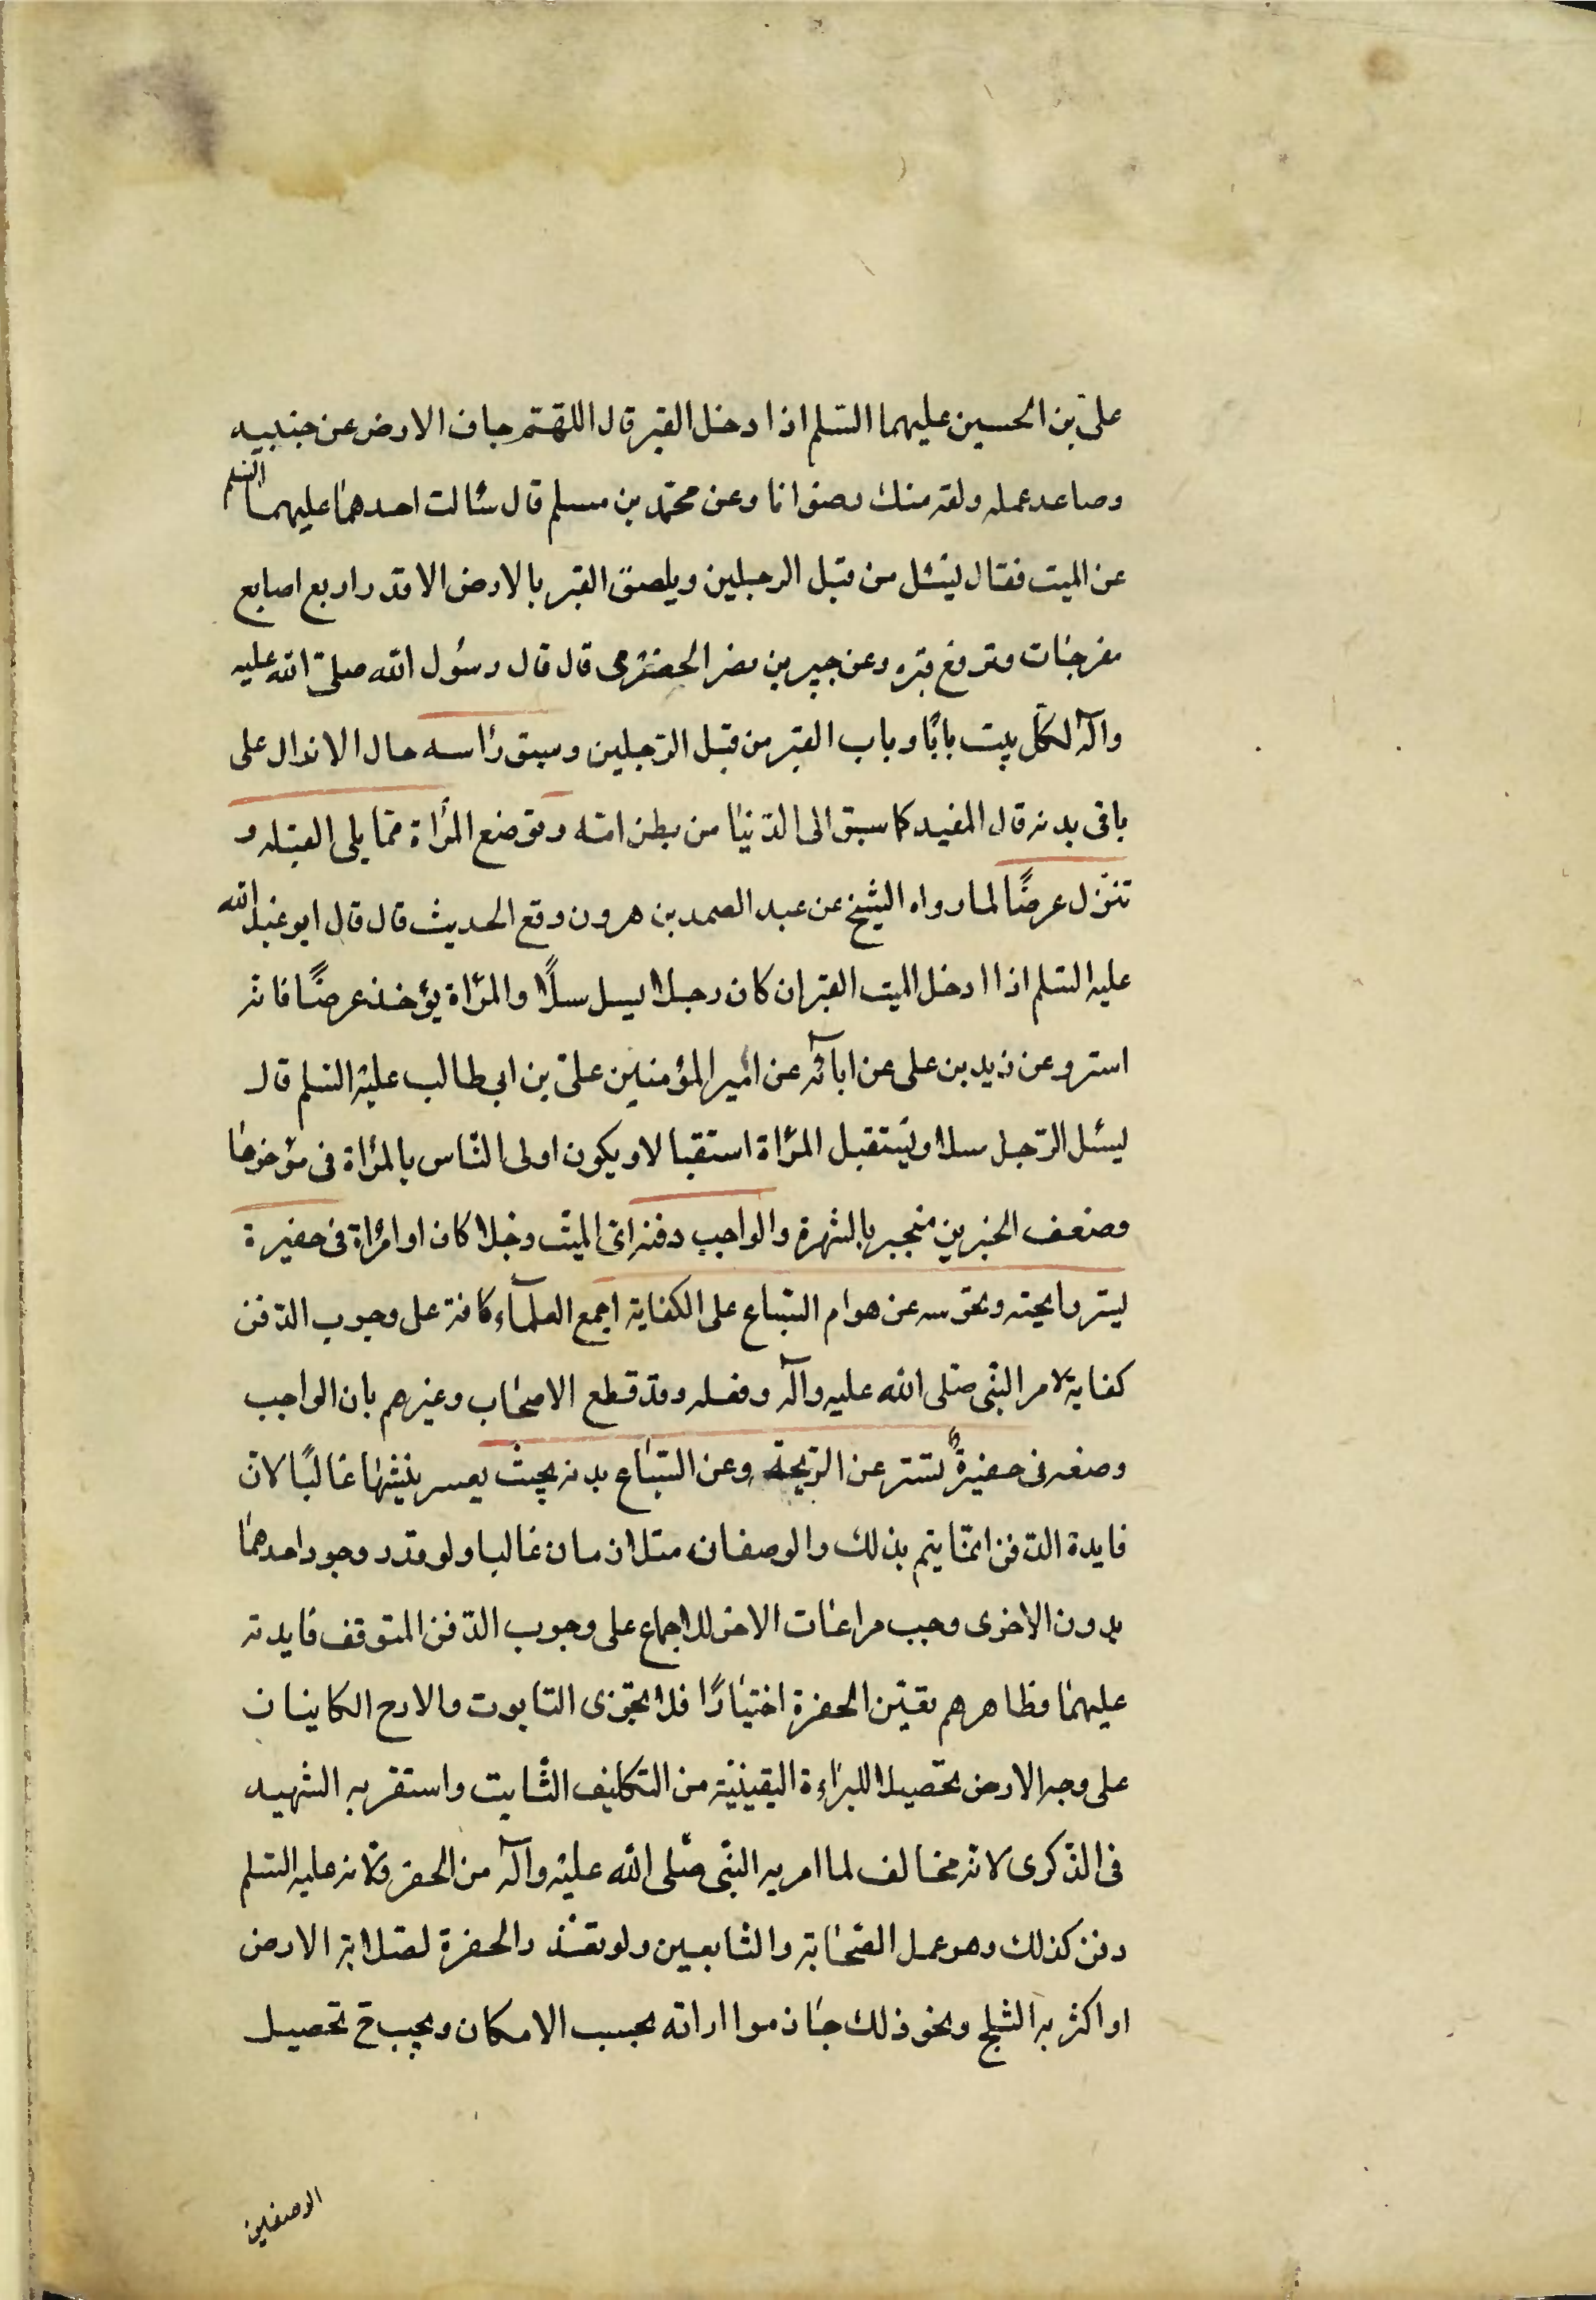 علىّ بن الحسين عليهما السّلم اذا دخل القبر قال اللّهمّ جاف الارض عن جنبيه
وصاعد عمله ولقه منك رضوانا وعن محمّد بن مسلم قال سئالت احدهما عليهما السّلم
عن الميت فقال ليسّل من قبل الرجلين ويلصق القبر بالارض الا قدر اربع اصابع
مفرجات وترفع قبره وعن جبير بن نضر الحضرمى قال قال رسول الله صلّى الله عليه
وآله لكلّ بيت بابًا وباب القبر من قبل الرّجلين وسبق رأسه حال الانزال على
باقى بدنه قال المفيد كما سبق الى الدّنيا من بطن امّه وتوضع المرأة ممّا يلى القبله و
تنزّل عرضًا لما رواه الشيخ عن عبد الصمد بن هرون رفع الحديث قال قال ابو عبد الله
عليه السّلم اذا ادخل الميت القبر ان كان رجلا يسل سلًّا والمرأة يؤخذ عرضًا فانّه
استر وعن زيد بن على عن ابآئه عن أمير المؤمنين علىّ بن ابى طالب عليه السّلم قال
ليسّل الرّجل سلا وتستقبل المرأة استقبالا ويكون اولى النّاس بالمرأة فى مؤخرها
وضعف الخبرين منجبر بالشهرة والواجب دفنه اى الميّت رجلا كان او امرأة فى حفيرة
ليتر رايحته ويحرسه عن هوام السّباع على الكفاية اجمع العلمآء كافة على وجوب الدّفن
كفاية لامر النّبى صّلى الله عليه وآله وفعله وقد قطع الاصحاب وغيرهم بان الواجب
وضعه فى حفيرة تستر عن الرّيحة وعن السّباع بدنه بحيث يعسر ينبشها غالبًا لانّ
فايدة الدّفن انمّا يتم بذلك والوصفان متلازمان غالبا ولو قدر وجود احدهما
بدون الاخرى وجب مراعات الاخر للاجماع على وجوب الدّفن المتوقف فايدته
عليهما وظاهرهم تعيّن الحفرة اختيارًا فلا يجزى التابوت والارح الكاينان
على وجه الارض تحصيلا للبراءة اليقينيّة من التكليف الثّابت واستقربه الشهيد
فى الذّكرى لانّه مخالف لما امر به النّبى صّلى الله عليه وآله من الحفر ولانه عليه السّلم
دفن كذلك وهو عمل الصّحابة والتّابعين ولو تعذّر الحفرة لصلابة الارض
او اكثر به الثلج ونحو ذلك جاز مواراته بحسب الامكان ويجب ح تحصيل
الوصفين